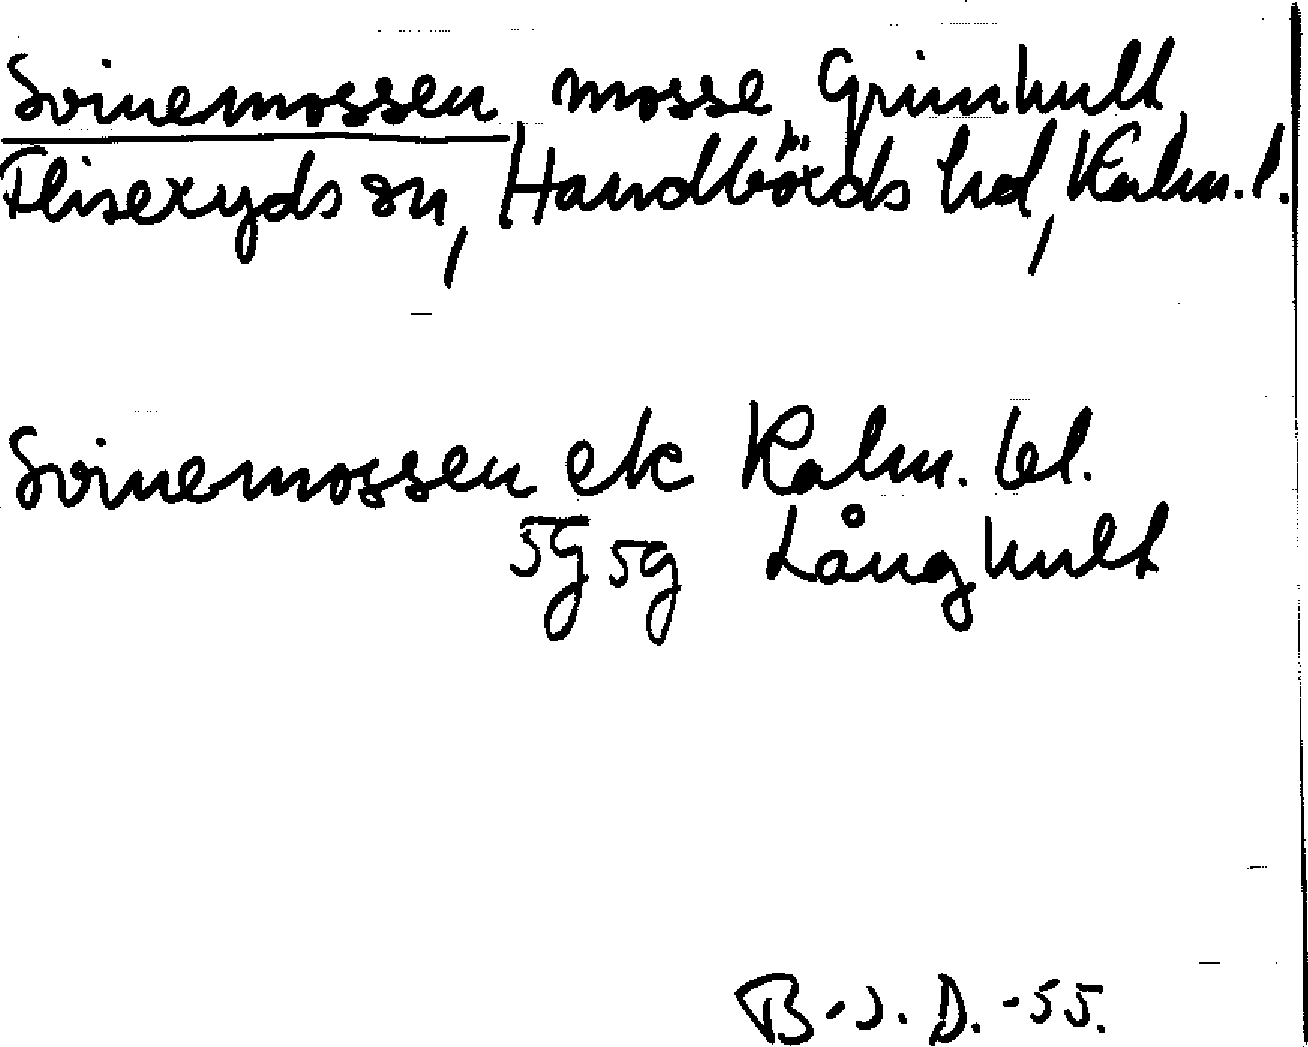 Svinemossen mosse, Grimhult,
Fliseryds sn, Handbörds hd, Kalm. l.
Svinemossen ek Kalm. bl.
5G 5g Långhult
B-J. D. -55.